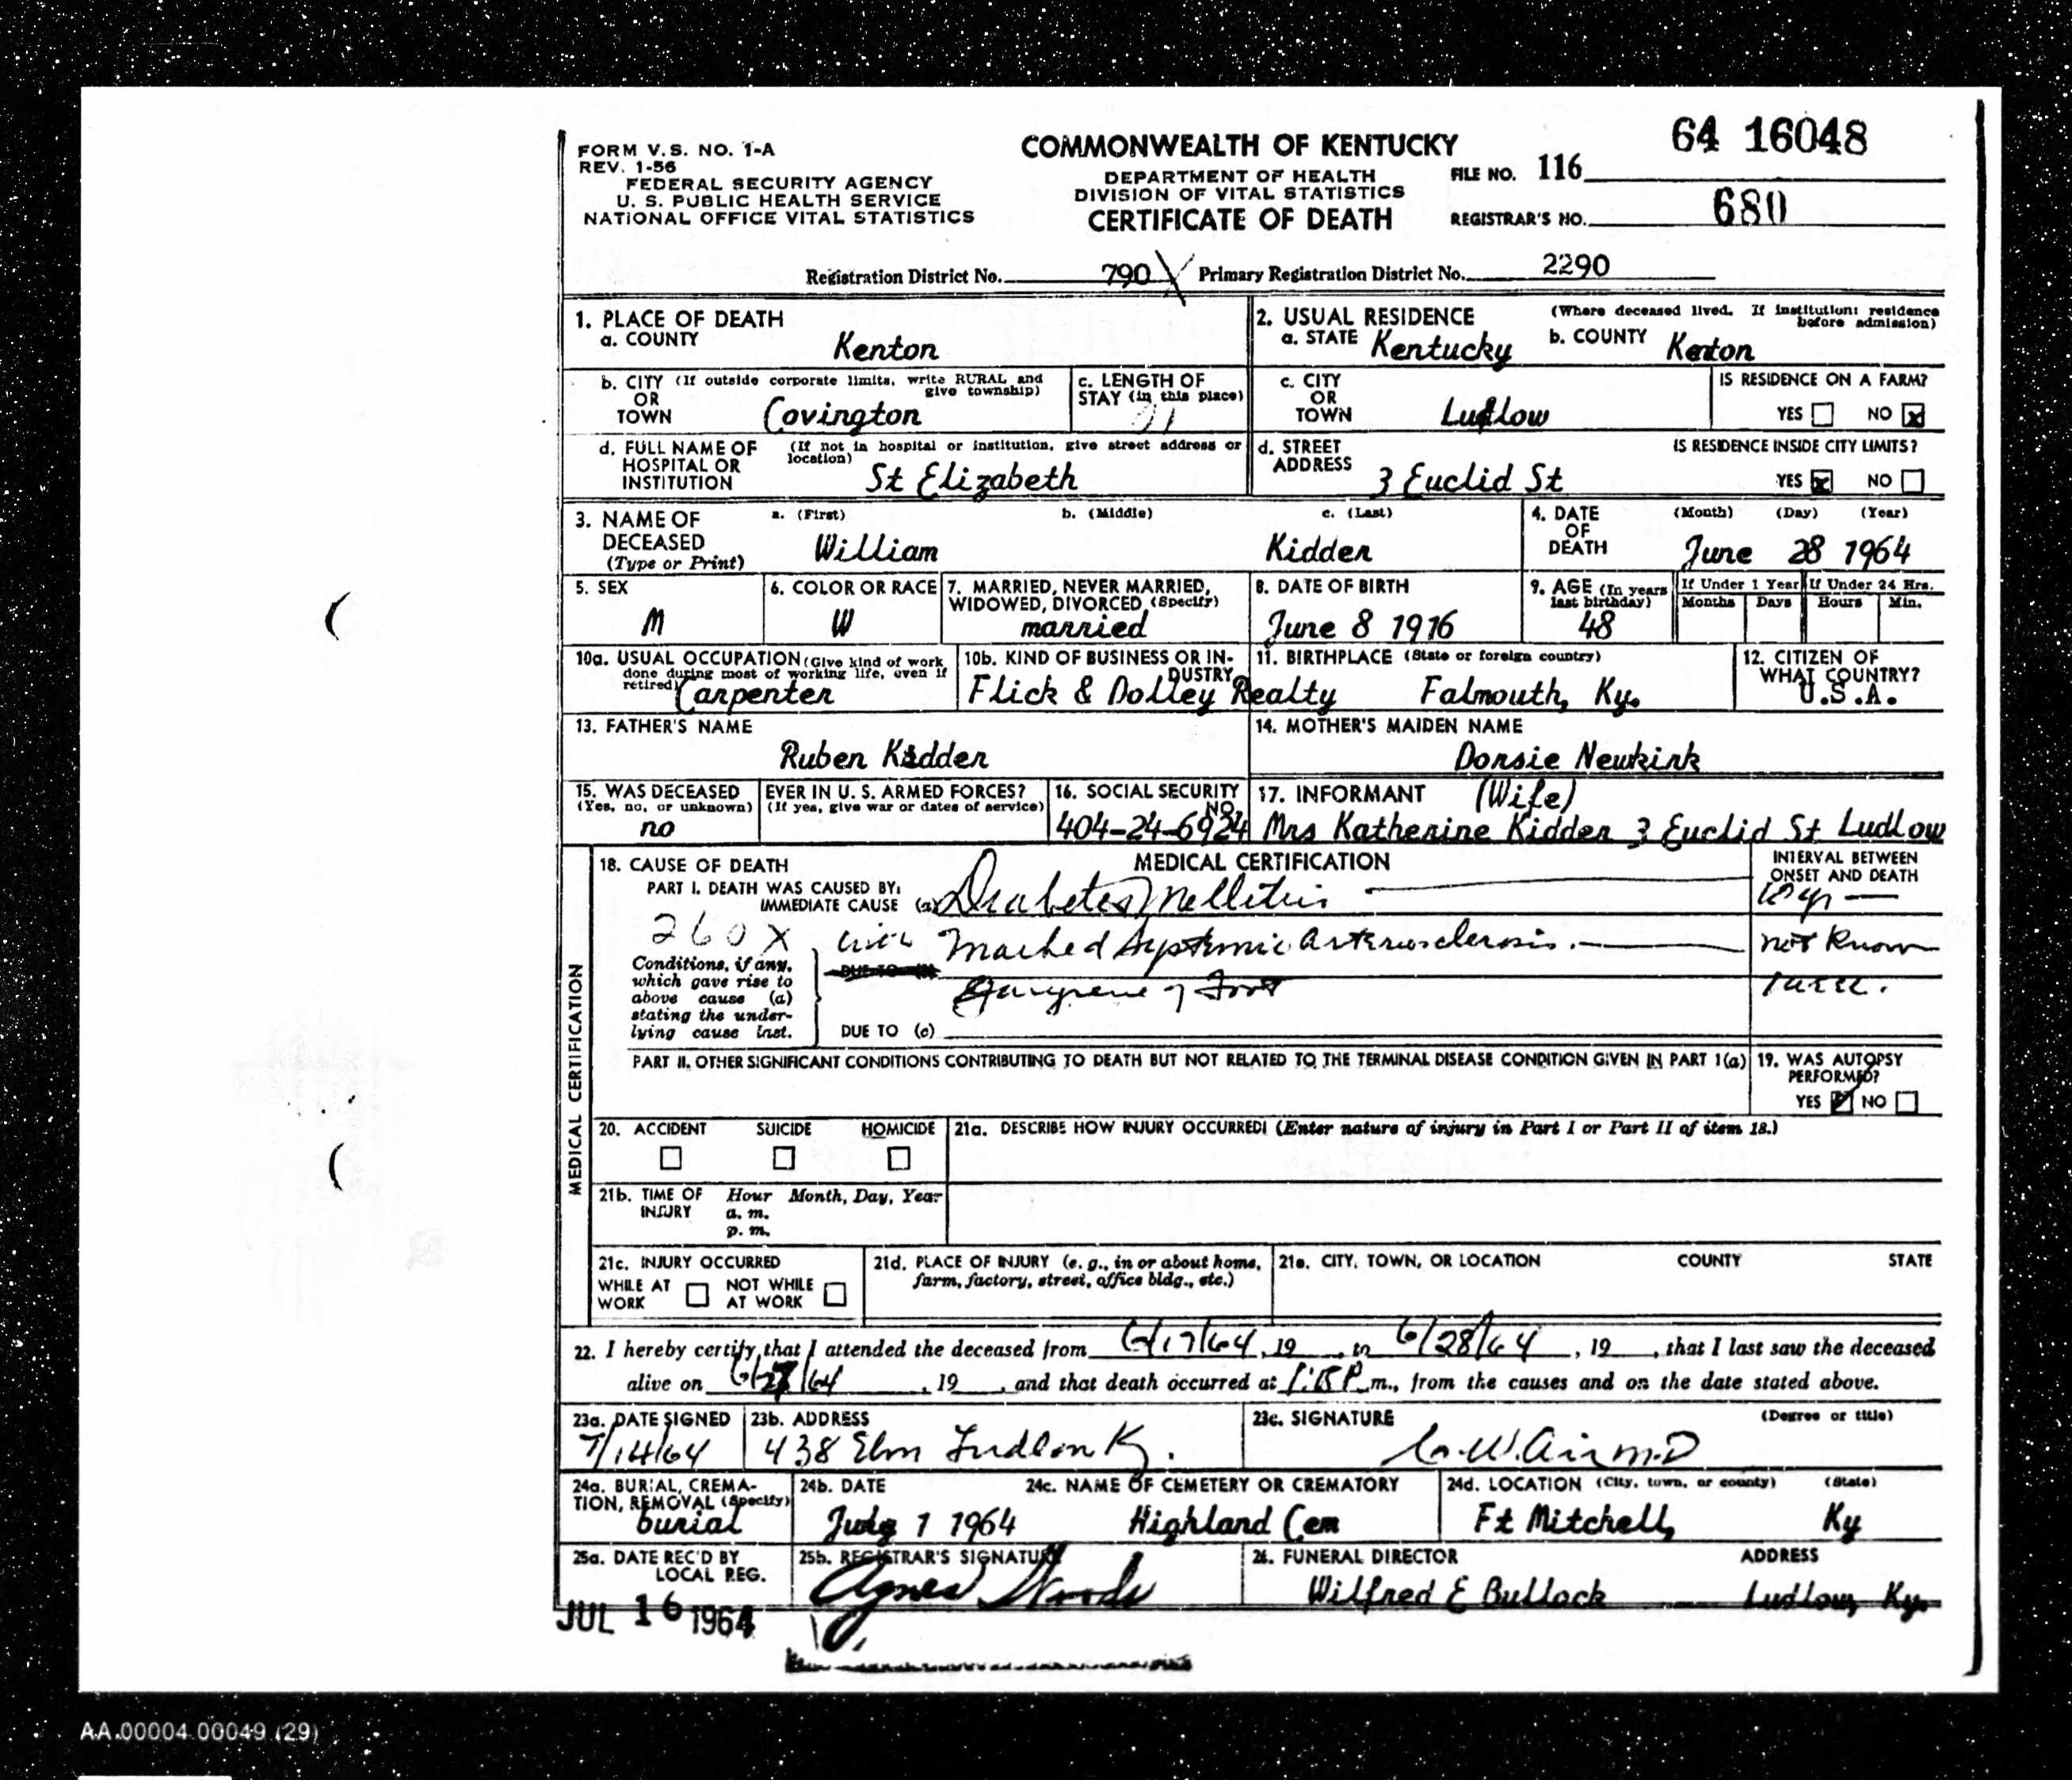 64 16048
FORM V.S. NO. 1-A
REV. 1-56
FEDERAL SECURITY AGENCY
U. S. PUBLIC HEALTH SERVICE
NATIONAL OFFICE VITAL STATISTICS
COMMONWEALTH OF KENTUCKY
DEPARTMENT OF HEALTH
DIVISION OF VITAL STATISTICS
CERTIFICATE OF DEATH
FILE NO. 116
REGISTRAR'S NO. 680
Registration District No. 790 X Primary Registration District No. 2290
1. PLACE OF DEATH
a. COUNTY Kenton
2. USUAL RESIDENCE (Where deceased lived. If institution: residence before admission)
a. STATE Kentucky b. COUNTY Kenton
b. CITY (If outside corporate limits, write RURAL and give township)
OR
TOWN Covington
c. LENGTH OF
STAY (in this place)
c. CITY
OR
TOWN Ludlow
IS RESIDENCE ON A FARM?
YES NO x
d. FULL NAME OF (If not in hospital or institution, give street address or location)
HOSPITAL OR
INSTITUTION St Elizabeth
d. STREET
ADDRESS 3 Euclid St
IS RESIDENCE INSIDE CITY LIMITS?
YES x NO
3. NAME OF
DECEASED
(Type or Print)
a. (First) b. (Middle) c. (Last)
William Kidder
4. DATE
OF
DEATH
(Month) (Day) (Year)
June 28 1964
5. SEX
M
6. COLOR OR RACE
W
7. MARRIED, NEVER MARRIED,
WIDOWED, DIVORCED (Specify)
married
8. DATE OF BIRTH
June 8 1916
9. AGE (In years last birthday)
48
If Under 1 Year If Under 24 Hrs.
Months Days Hours Min.
10a. USUAL OCCUPATION (Give kind of work
done during most of working life, even if
retired) Carpenter
10b. KIND OF BUSINESS OR INDUSTRY
Flick & Dolley Realty
11. BIRTHPLACE (State or foreign country)
Falmouth, Ky.
12. CITIZEN OF
WHAT COUNTRY?
U.S.A.
13. FATHER'S NAME
Ruben Kidder
14. MOTHER'S MAIDEN NAME
Dorsie Newkirk
15. WAS DECEASED EVER IN U. S. ARMED FORCES?
(Yes, no, or unknown) (If yes, give war or dates of service)
no
16. SOCIAL SECURITY NO.
404-24-6924
17. INFORMANT (Wife)
Mrs Katherine Kidder 3 Euclid St Ludlow
MEDICAL CERTIFICATION
18. CAUSE OF DEATH MEDICAL CERTIFICATION
INTERVAL BETWEEN
ONSET AND DEATH
PART I. DEATH WAS CAUSED BY:
IMMEDIATE CAUSE (a) Diabetes Mellitus 10 yr
260X
with Marked Systemic Arteriosclerosis. not known
DUE TO (b)
Gangrene of Foot
Conditions, if any,
which gave rise to
above cause (a)
stating the under-
lying cause last.
DUE TO (c)
PART II. OTHER SIGNIFICANT CONDITIONS CONTRIBUTING TO DEATH BUT NOT RELATED TO THE TERMINAL DISEASE CONDITION GIVEN IN PART 1(a)
19. WAS AUTOPSY
PERFORMED?
YES NO
20. ACCIDENT SUICIDE HOMICIDE
21a. DESCRIBE HOW INJURY OCCURRED: (Enter nature of injury in Part I or Part II of item 18.)
21b. TIME OF INJURY Hour Month, Day, Year
a. m.
p. m.
21c. INJURY OCCURRED
WHILE AT WORK NOT WHILE AT WORK
21d. PLACE OF INJURY (e. g., in or about home,
farm, factory, street, office bldg., etc.)
21e. CITY, TOWN, OR LOCATION COUNTY STATE
22. I hereby certify that I attended the deceased from 6/17/64, 19 to 6/28/64, 19 , that I last saw the deceased
alive on 6/27/64, 19 , and that death occurred at 1:15 P.m., from the causes and on the date stated above.
23a. DATE SIGNED
7/14/64
23b. ADDRESS
438 Elm Ludlow Ky.
23c. SIGNATURE (Degree or title)
M.D
24a. BURIAL, CREMA-
TION, REMOVAL (Specify)
burial
24b. DATE
July 1 1964
24c. NAME OF CEMETERY OR CREMATORY
Highland Cem
24d. LOCATION (City, town, or county) (State)
Ft Mitchell, Ky
25a. DATE REC'D BY
LOCAL REG.
JUL 16 1964
25b. REGISTRAR'S SIGNATURE
Agnes Woods
26. FUNERAL DIRECTOR ADDRESS
Wilfred E Bullock Ludlow, Ky.
AA.00004.00049 (29)